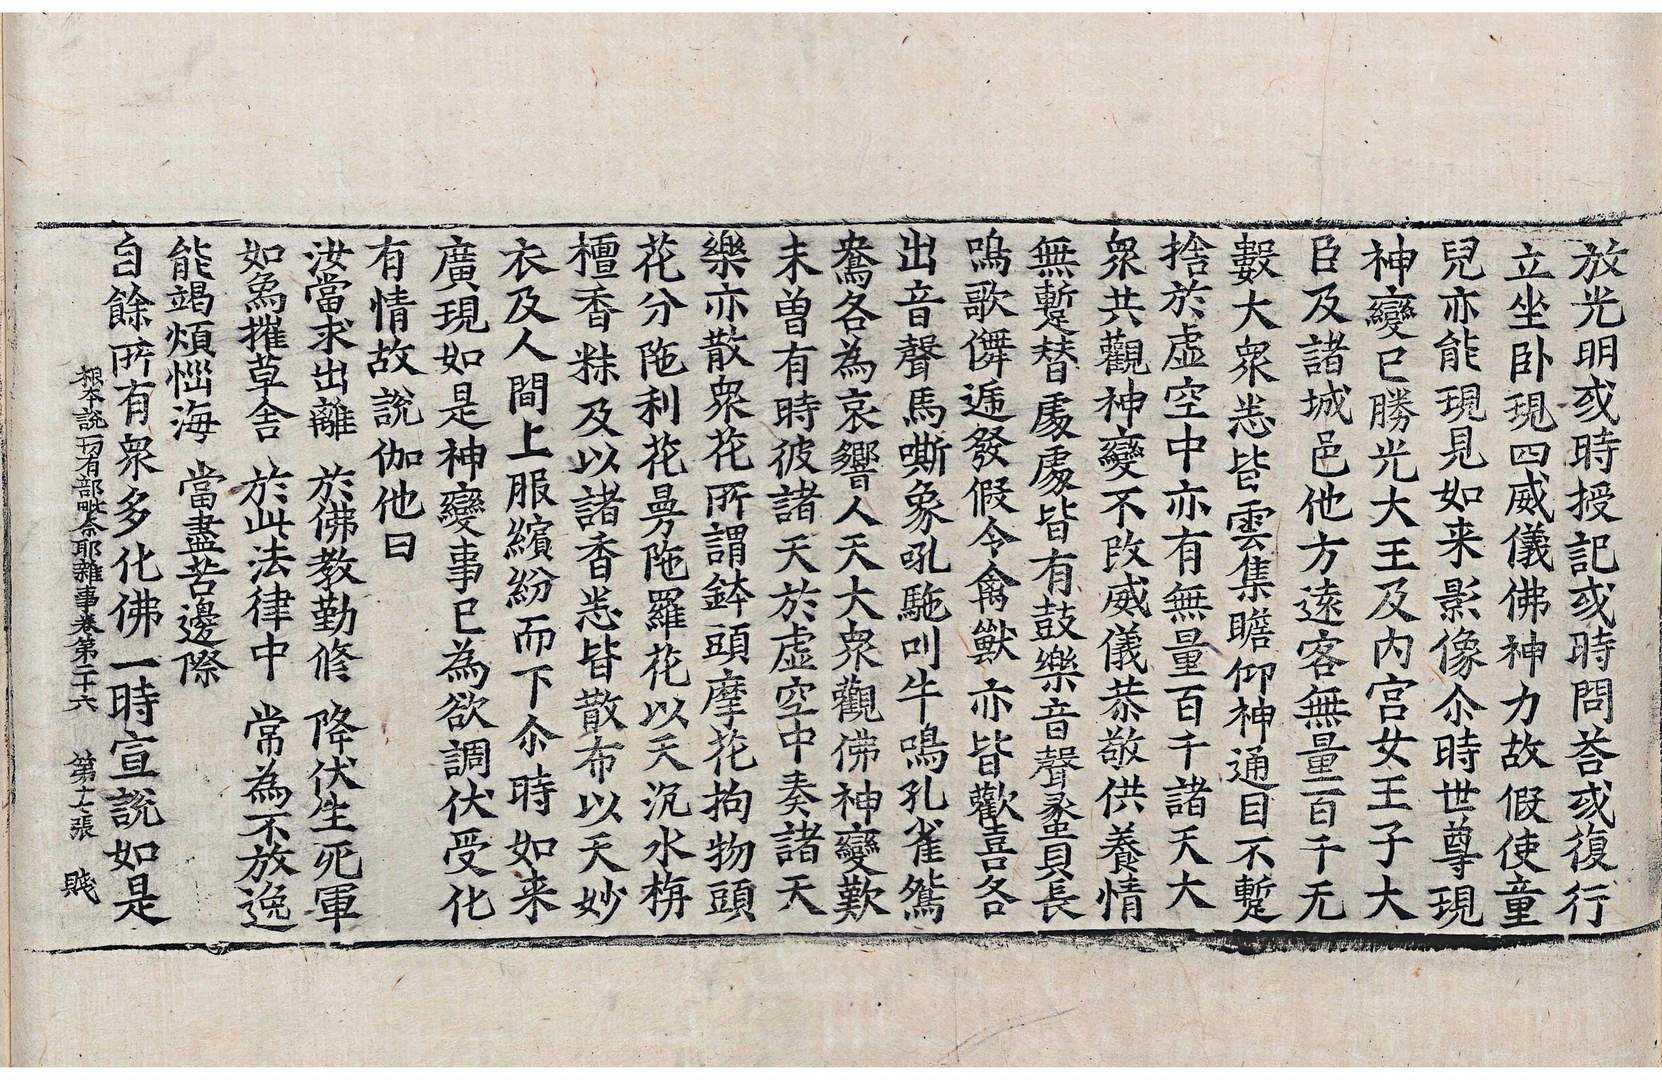 放光明或時授記或時問荅或復行
立坐卧現四威儀佛神力故假使童
兒亦能現見如来影像尒時世尊現
神變已勝光大王及內宮女王子大
臣及諸城邑他方遠客無量百千无
數大衆悉皆雲集瞻仰神通目不暫
捨於虛空中亦有無量百千諸天大
衆共觀神變不改威儀恭敬供養情
無蹔替處處皆有鼓樂音聲蠡貝長
鳴歌儛遞發假令禽獸亦皆歡喜各
出音聲馬嘶象吼駞叫牛鳴孔雀鴛
鴦各為哀響人天大衆觀佛神變歎
未曾有時彼諸天於虛空中奏諸天
樂亦散衆花所謂鉢頭摩花拘物頭
花分陁利花曼陁羅花以天沉水栴
檀香粖及以諸香悉皆散布以天妙
衣及人間上服繽紛而下尒時如来
廣現如是神變事已為欲調伏受化
有情故說伽他曰
汝當求出離　於佛教勤修　降伏生死軍
如象摧草舍　於此法律中　常為不放逸
能竭煩惱海　當盡苦邊際
自餘所有衆多化佛一時宣說如是
根本說一切有部毗奈耶雜事卷第二十六　第十七張　賤